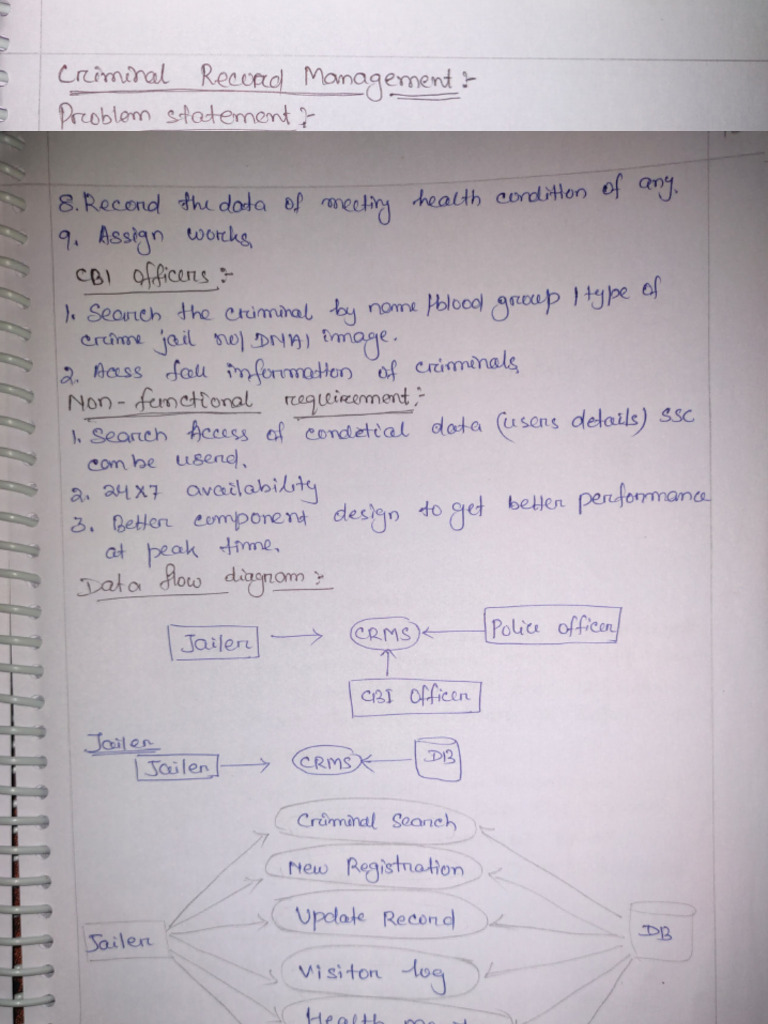 Criminal Record Management :-
Problem statement :-
8. Record the data of meeting health condition of any.
9. Assign works
CBI Officers :-
1. Search the criminal by name / blood group / type of
crime jail no/ DNA/ image.
2. Acss full information of criminals
Non-functional requirement :-
1. Search Access of condetial data (users details) SSC
can be usend.
2. 24x7 availability
3. Better component design to get better performance
at peak time.
Data flow diagram :-
Jailer
CRMS
Police officer
CBI Officer
Jailer
Jailer
CRMS
DB
Criminal Search
New Registration
Update Record
Jailer
DB
Visitor log
Health